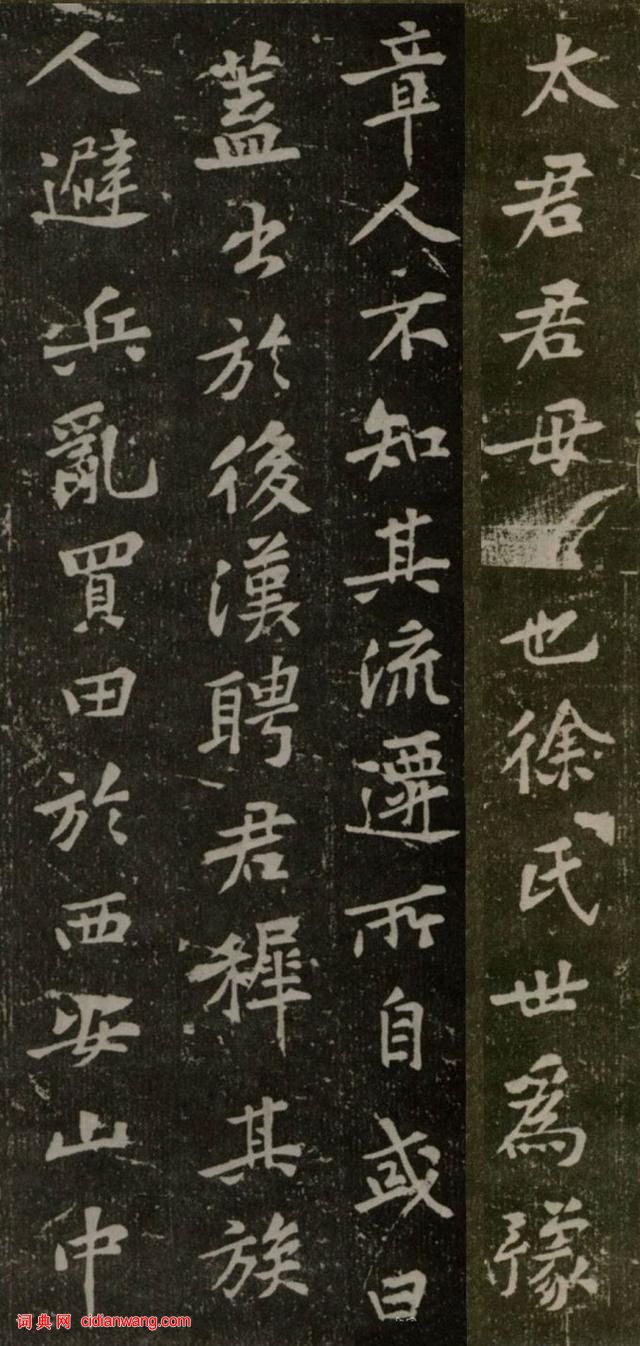 太君君母也徐氏世為豫
章人不知其流遷所自或曰
蓋出於後漢聘君稺其族
人避兵亂買田於西安山中
词典网 cidianwang.com